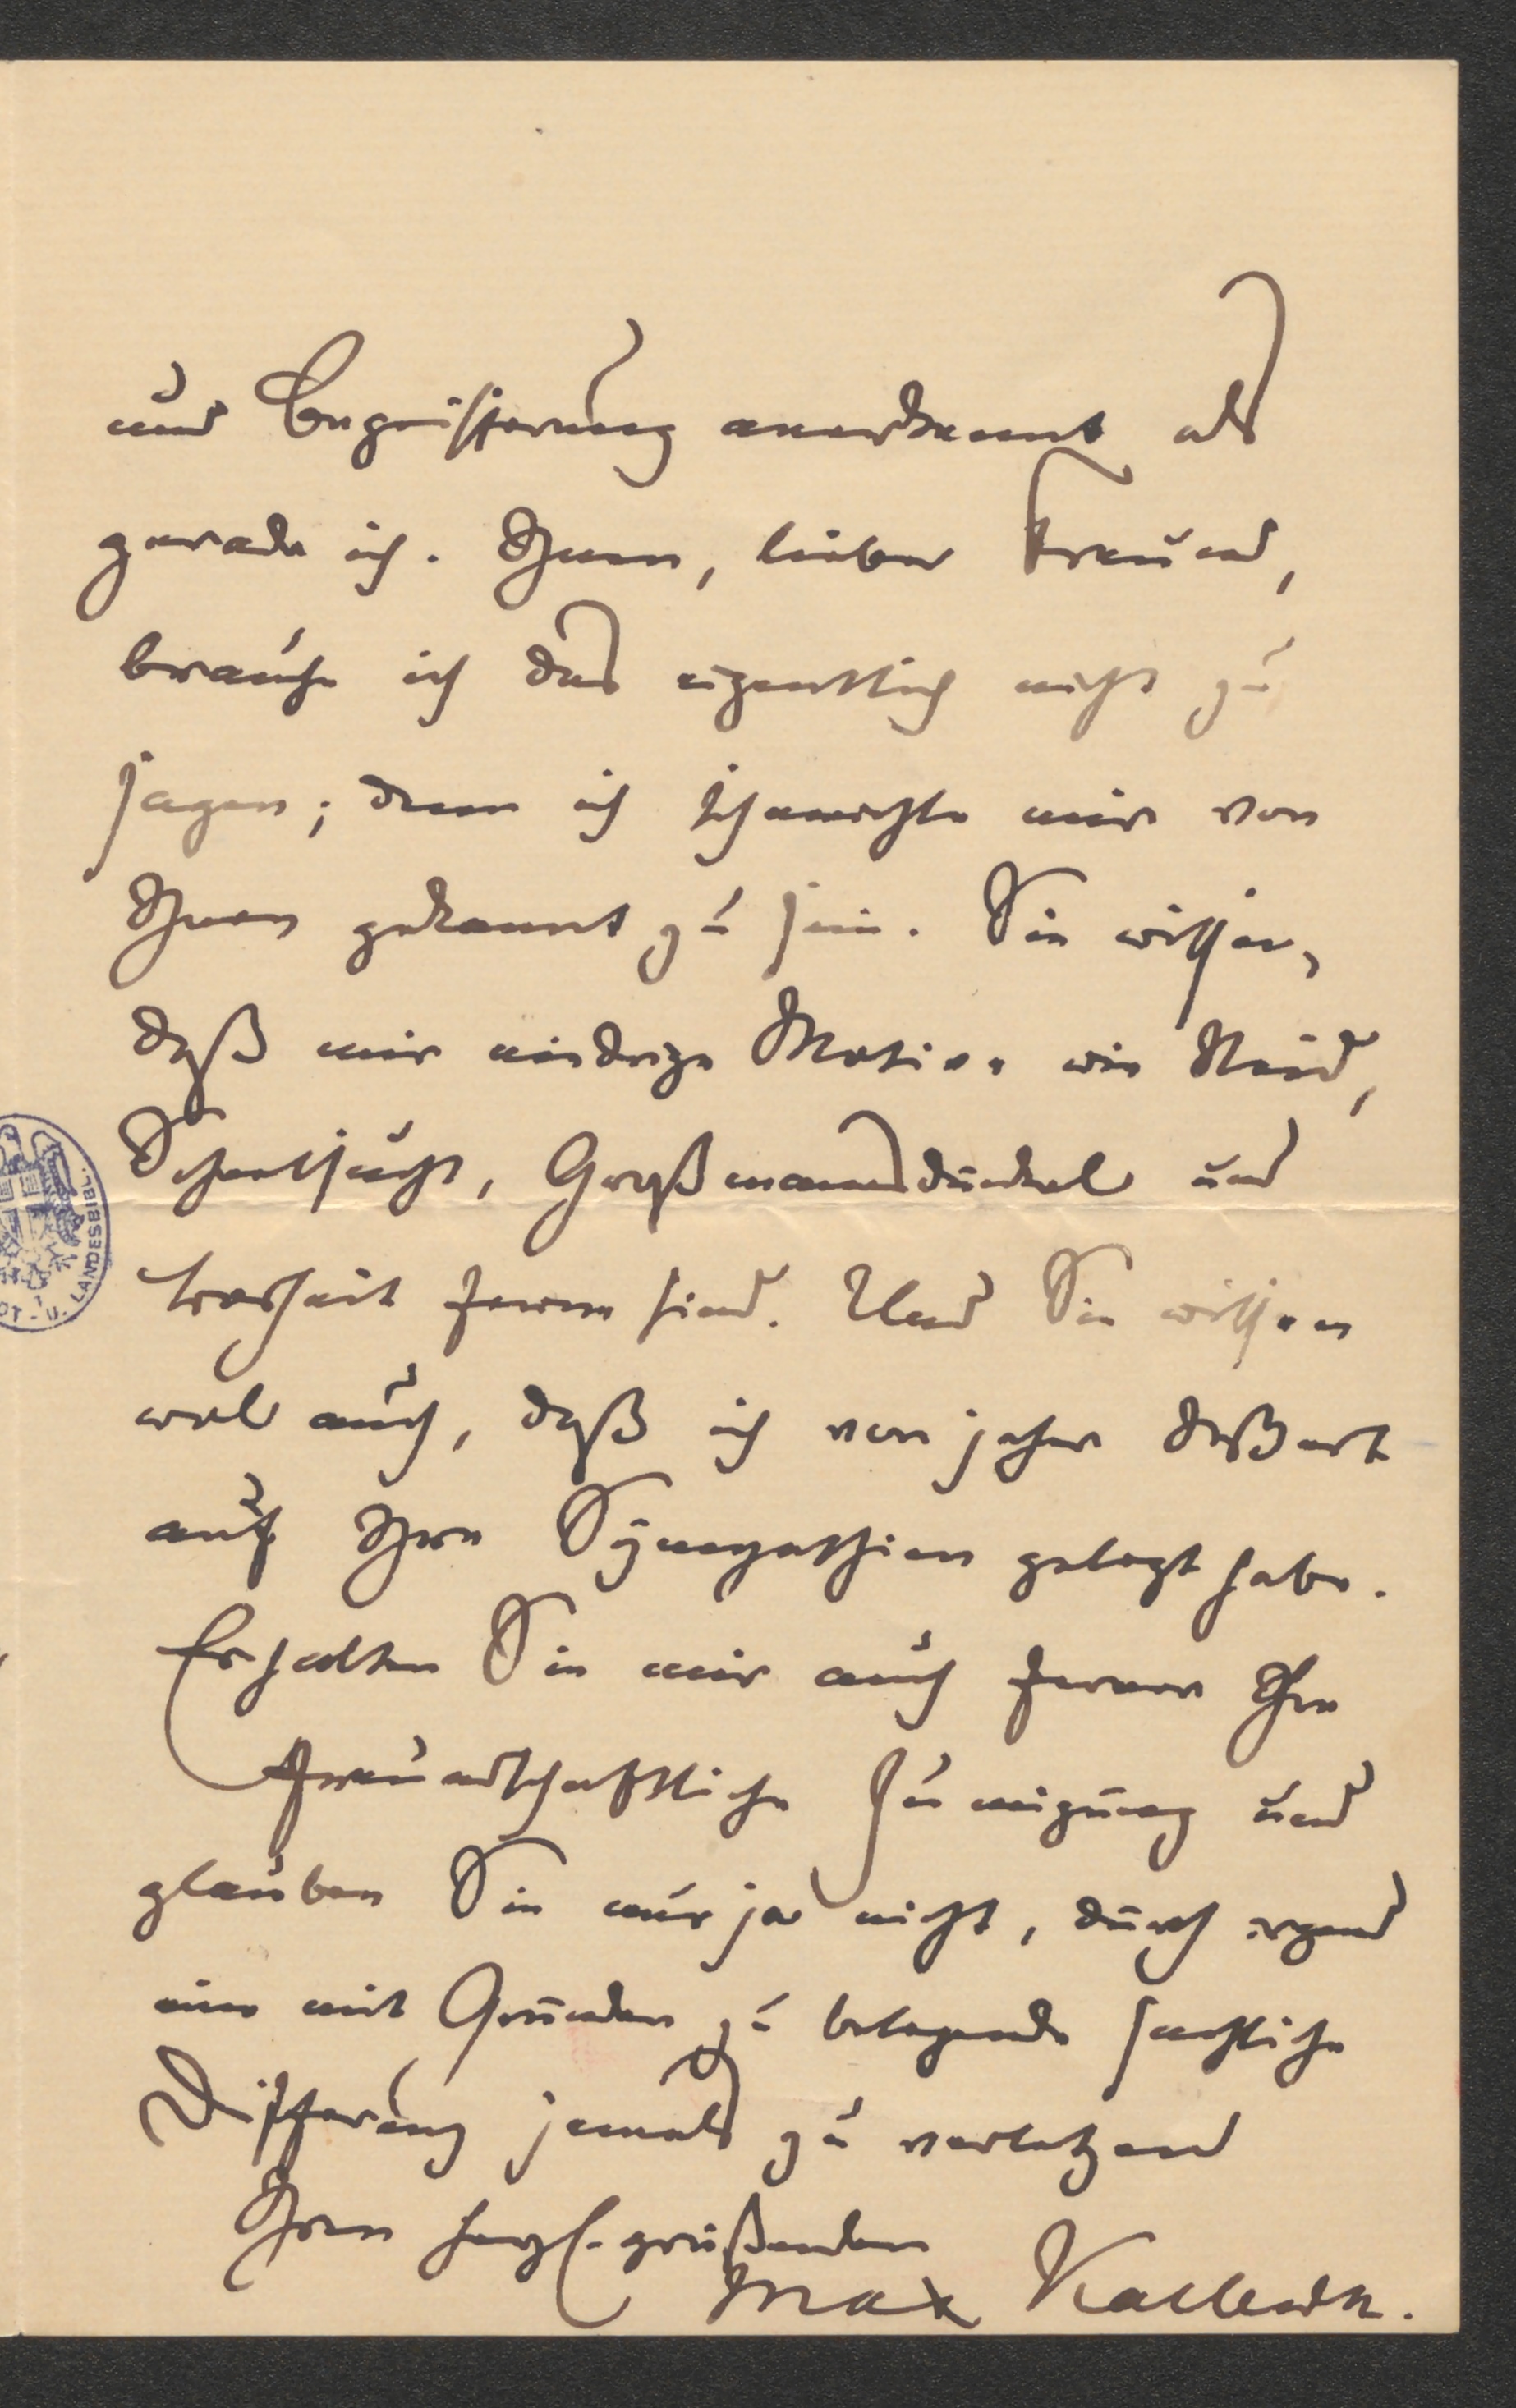 und Begeisterung anerkennt als
gerade ich. Ihnen, lieber Freund,
brauche ich das eigentlich nicht zu
sagen; denn ich schmeichle mir von
Ihnen gekannt zu sein. Sie wissen,
daß mir niedrige Motive wie Neid,
Scheelsucht, Großmannsdünkel und
Torheit ferne sind. Und Sie wissen
wol auch, daß ich von jeher Wert
auf Ihre Sympathien gelegt habe.
Erhalten Sie mir auch ferner Ihre
freundschaftliche Zuneigung und
glauben Sie nur ja nicht, durch irgend
eine mit Gründen zu belegende sachliche
Differenz jemals zu verletzend
Ihren herzl. grüßenden
Max Kalbeck.
U. LANDESBIBL.